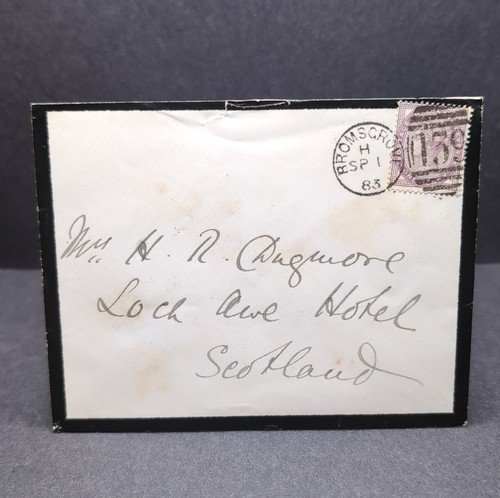 BROMSGROVE
H
SP 1
83
159
Mrs H. R. Dugmore
Loch Awe Hotel
Scotland